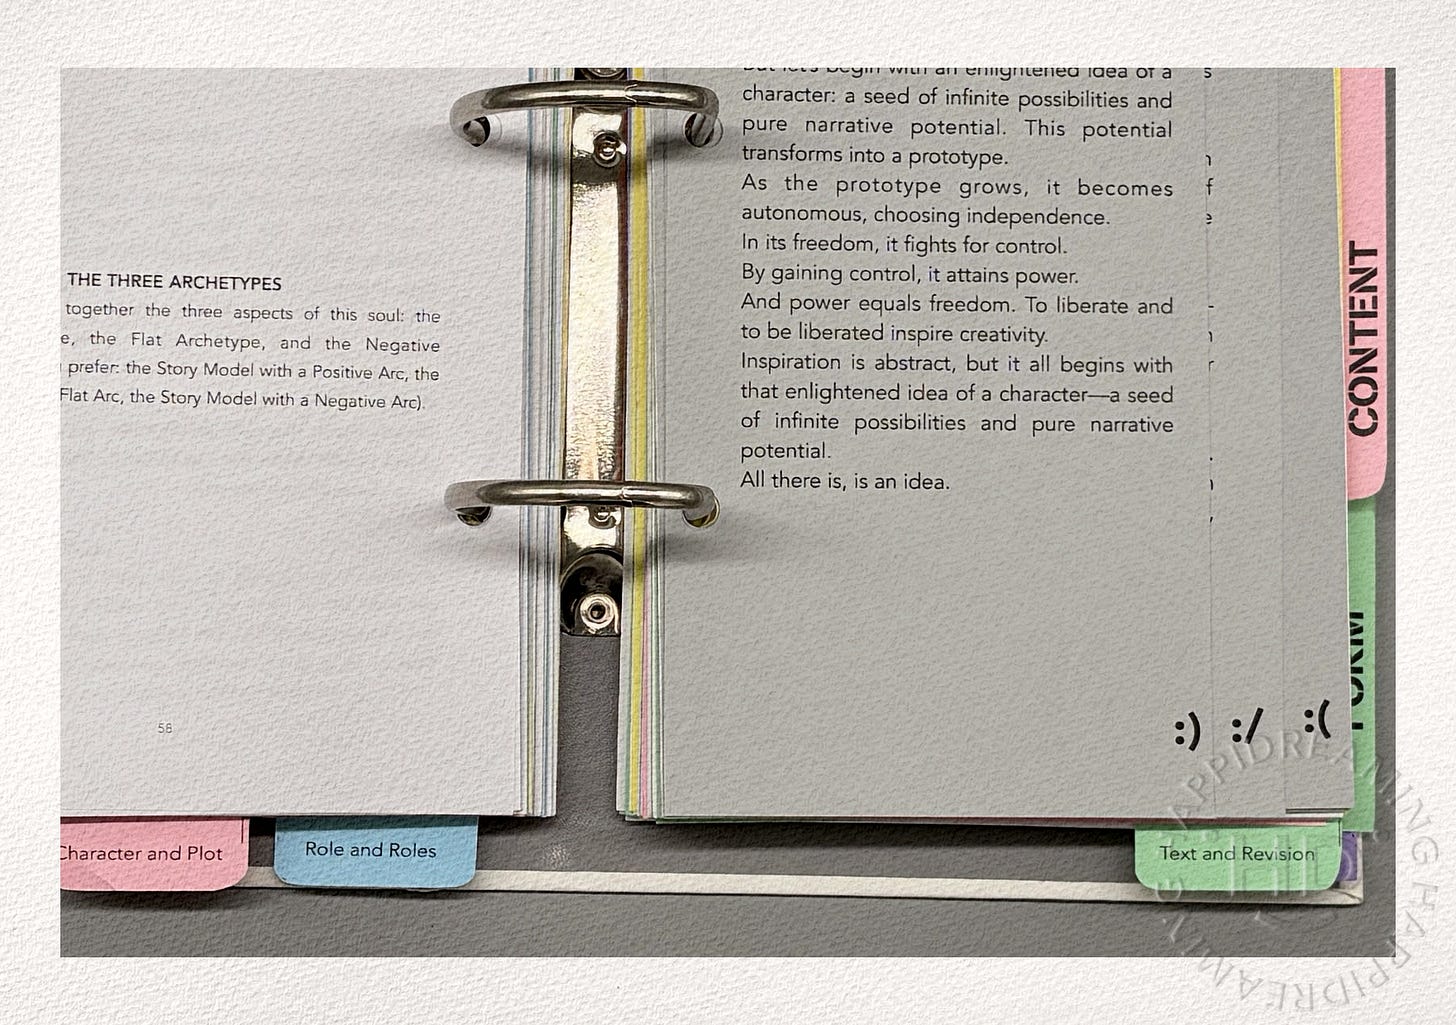 THE THREE ARCHETYPES
together the three aspects of this soul: the
e, the Flat Archetype, and the Negative
prefer: the Story Model with a Positive Arc, the
Flat Arc, the Story Model with a Negative Arc).
58
Character and Plot
Role and Roles
But let's begin with an enlightened idea of a
character: a seed of infinite possibilities and
pure narrative potential. This potential
transforms into a prototype.
As the prototype grows, it becomes
autonomous, choosing independence.
In its freedom, it fights for control.
By gaining control, it attains power.
And power equals freedom. To liberate and
to be liberated inspire creativity.
Inspiration is abstract, but it all begins with
that enlightened idea of a character—a seed
of infinite possibilities and pure narrative
potential.
All there is, is an idea.
:) :/ :(
CONTENT
FORM
Text and Revision
HAPPIDREAMING HAPPIDREAMING